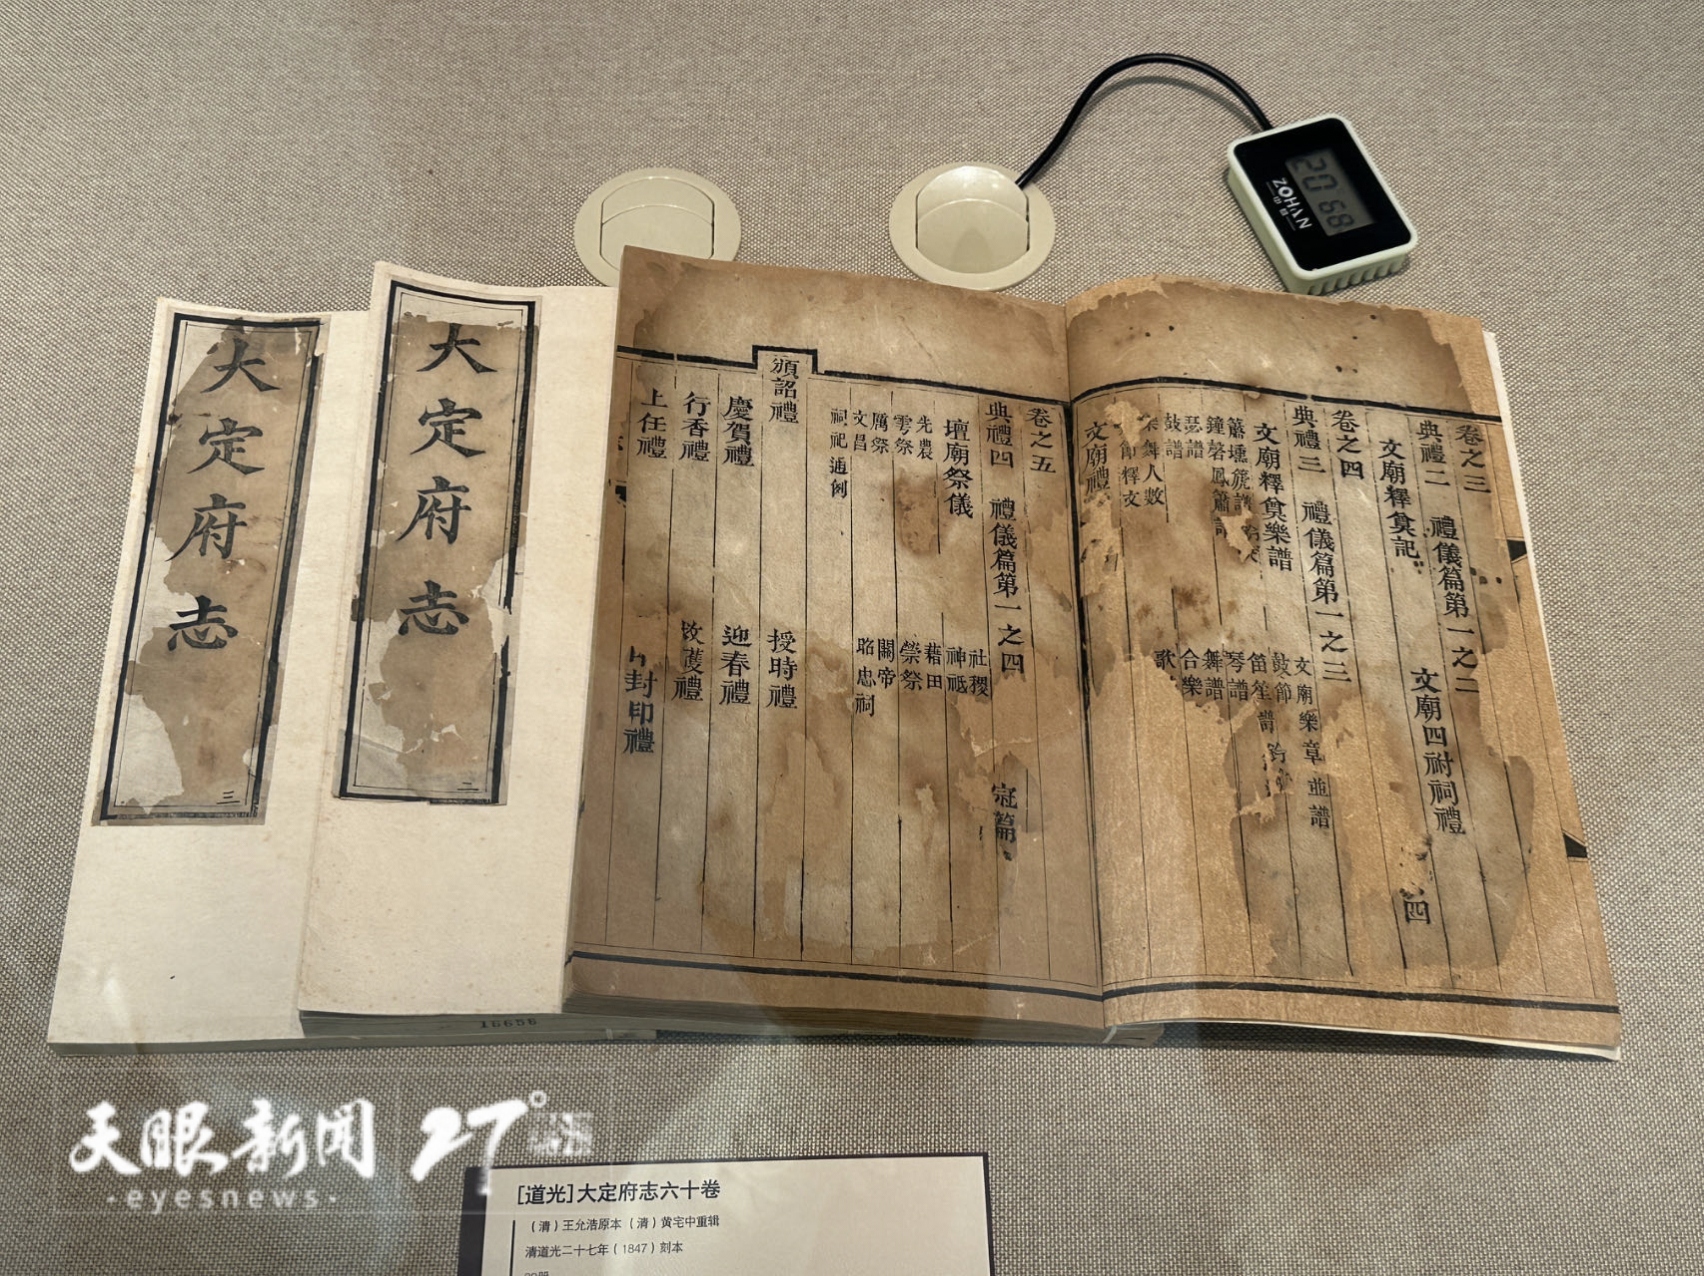 20
68
ZOHAN
大定府志
三
大定府志
二
卷之三
典禮二 禮儀篇第一之二
文廟釋奠記 文廟四祔祠禮
四
卷之四
典禮三 禮儀篇第一之三
文廟釋奠樂譜 文廟樂章並譜
鼓節
笛笙譜
瑟譜 琴譜
鼓譜 舞譜
合樂
舞人數 歌
節釋文
文廟禮
卷之五
典禮四 禮儀篇第一之四 冠篇
壇廟祭儀 社稷
神祗
先農 藉田
雩祭 禜祭
厲祭 關帝
文昌 昭忠祠
祠祀通例
頒詔禮 授時禮
慶賀禮 迎春禮
行香禮 救護禮
上任禮 封印禮
16656
天眼新闻 27°
·eyesnews·
[道光]大定府志六十卷
（清）王允浩原本（清）黄宅中重辑
清道光二十七年（1847）刻本